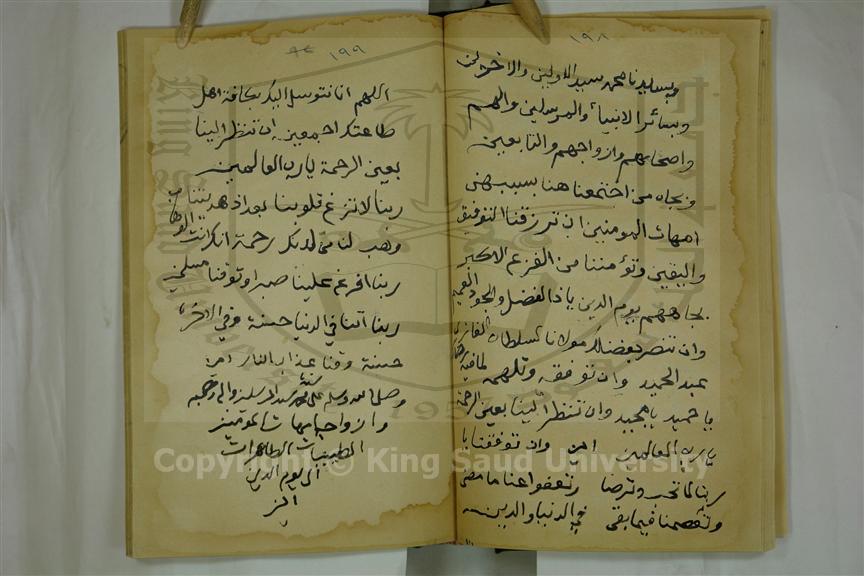 ١٩٨
وبسيدنا محمد سيد الاولين والاخرين
وبسائر الانبياء والمرسلين والهم
واصحابهم وازواجهم والتابعين
وبجاه من اجتمعنا هنا بسببهن
امهات المومنين ان ترزقنا التوفيق
واليقين وتؤمننا من الفزع الاكبر
بجاههم يوم الدين ياذا الفضل والجود العميم
وان تنصر بفضلك مولانا السلطان الغازي
عبد الحميد وان توفقه وتلهمه لما فيه
يا حميد يا مجيد وان تنظر الينا بعين الرحمة
يا رب العالمين امين وان توفقنا يا
ربنا لما تحب وترضا وتعفوا عنا ما مضى
وتعصمنا فيما بقى في الدنيا والدين
١٩٩
اللهم انا نتوسل اليك بكافة اهل
طاعتك اجمعين ان تنظر الينا
بعين الرحمة يا رب العالمين
ربنا لا تزغ قلوبنا بعد اذ هديتنا
وهب لنا من لدنك رحمة انك انت الوهاب
ربنا افرغ علينا صبرا وتوفنا مسلمين
ربنا اتنا في الدنيا حسنة وفي الاخرة
حسنة وقنا عذاب النار امين
وصلى الله وسلم على سيدنا محمد سيد المرسلين واله وصحبه
وازواجه امهات المؤمنين
الطيبات الطاهرات
الى يوم الدين
امين
Copyright © King Saud University
1957